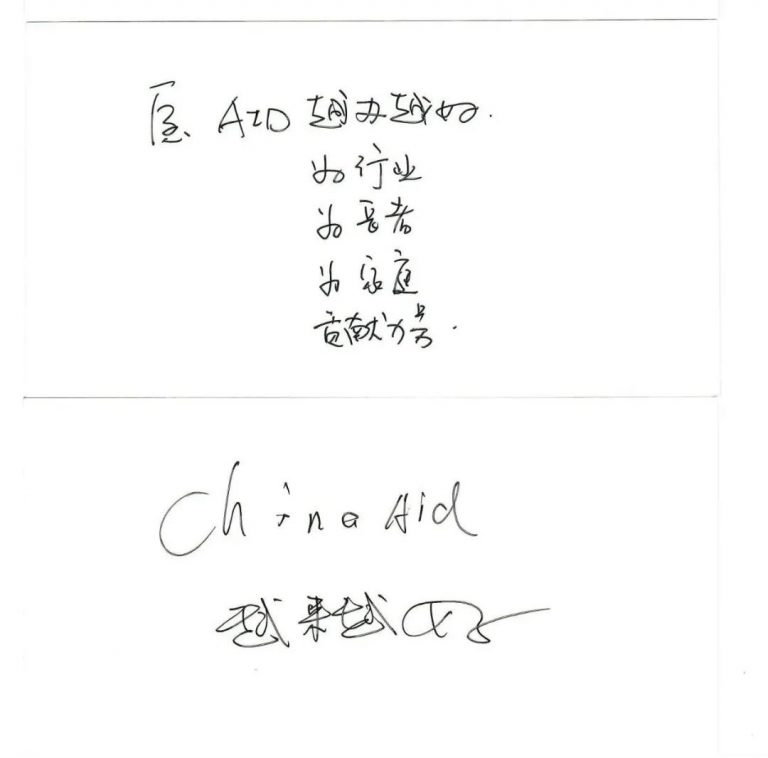 AID 越办越好.
为行业
为长者
为家庭
贡献力量.
China Aid
越来越好